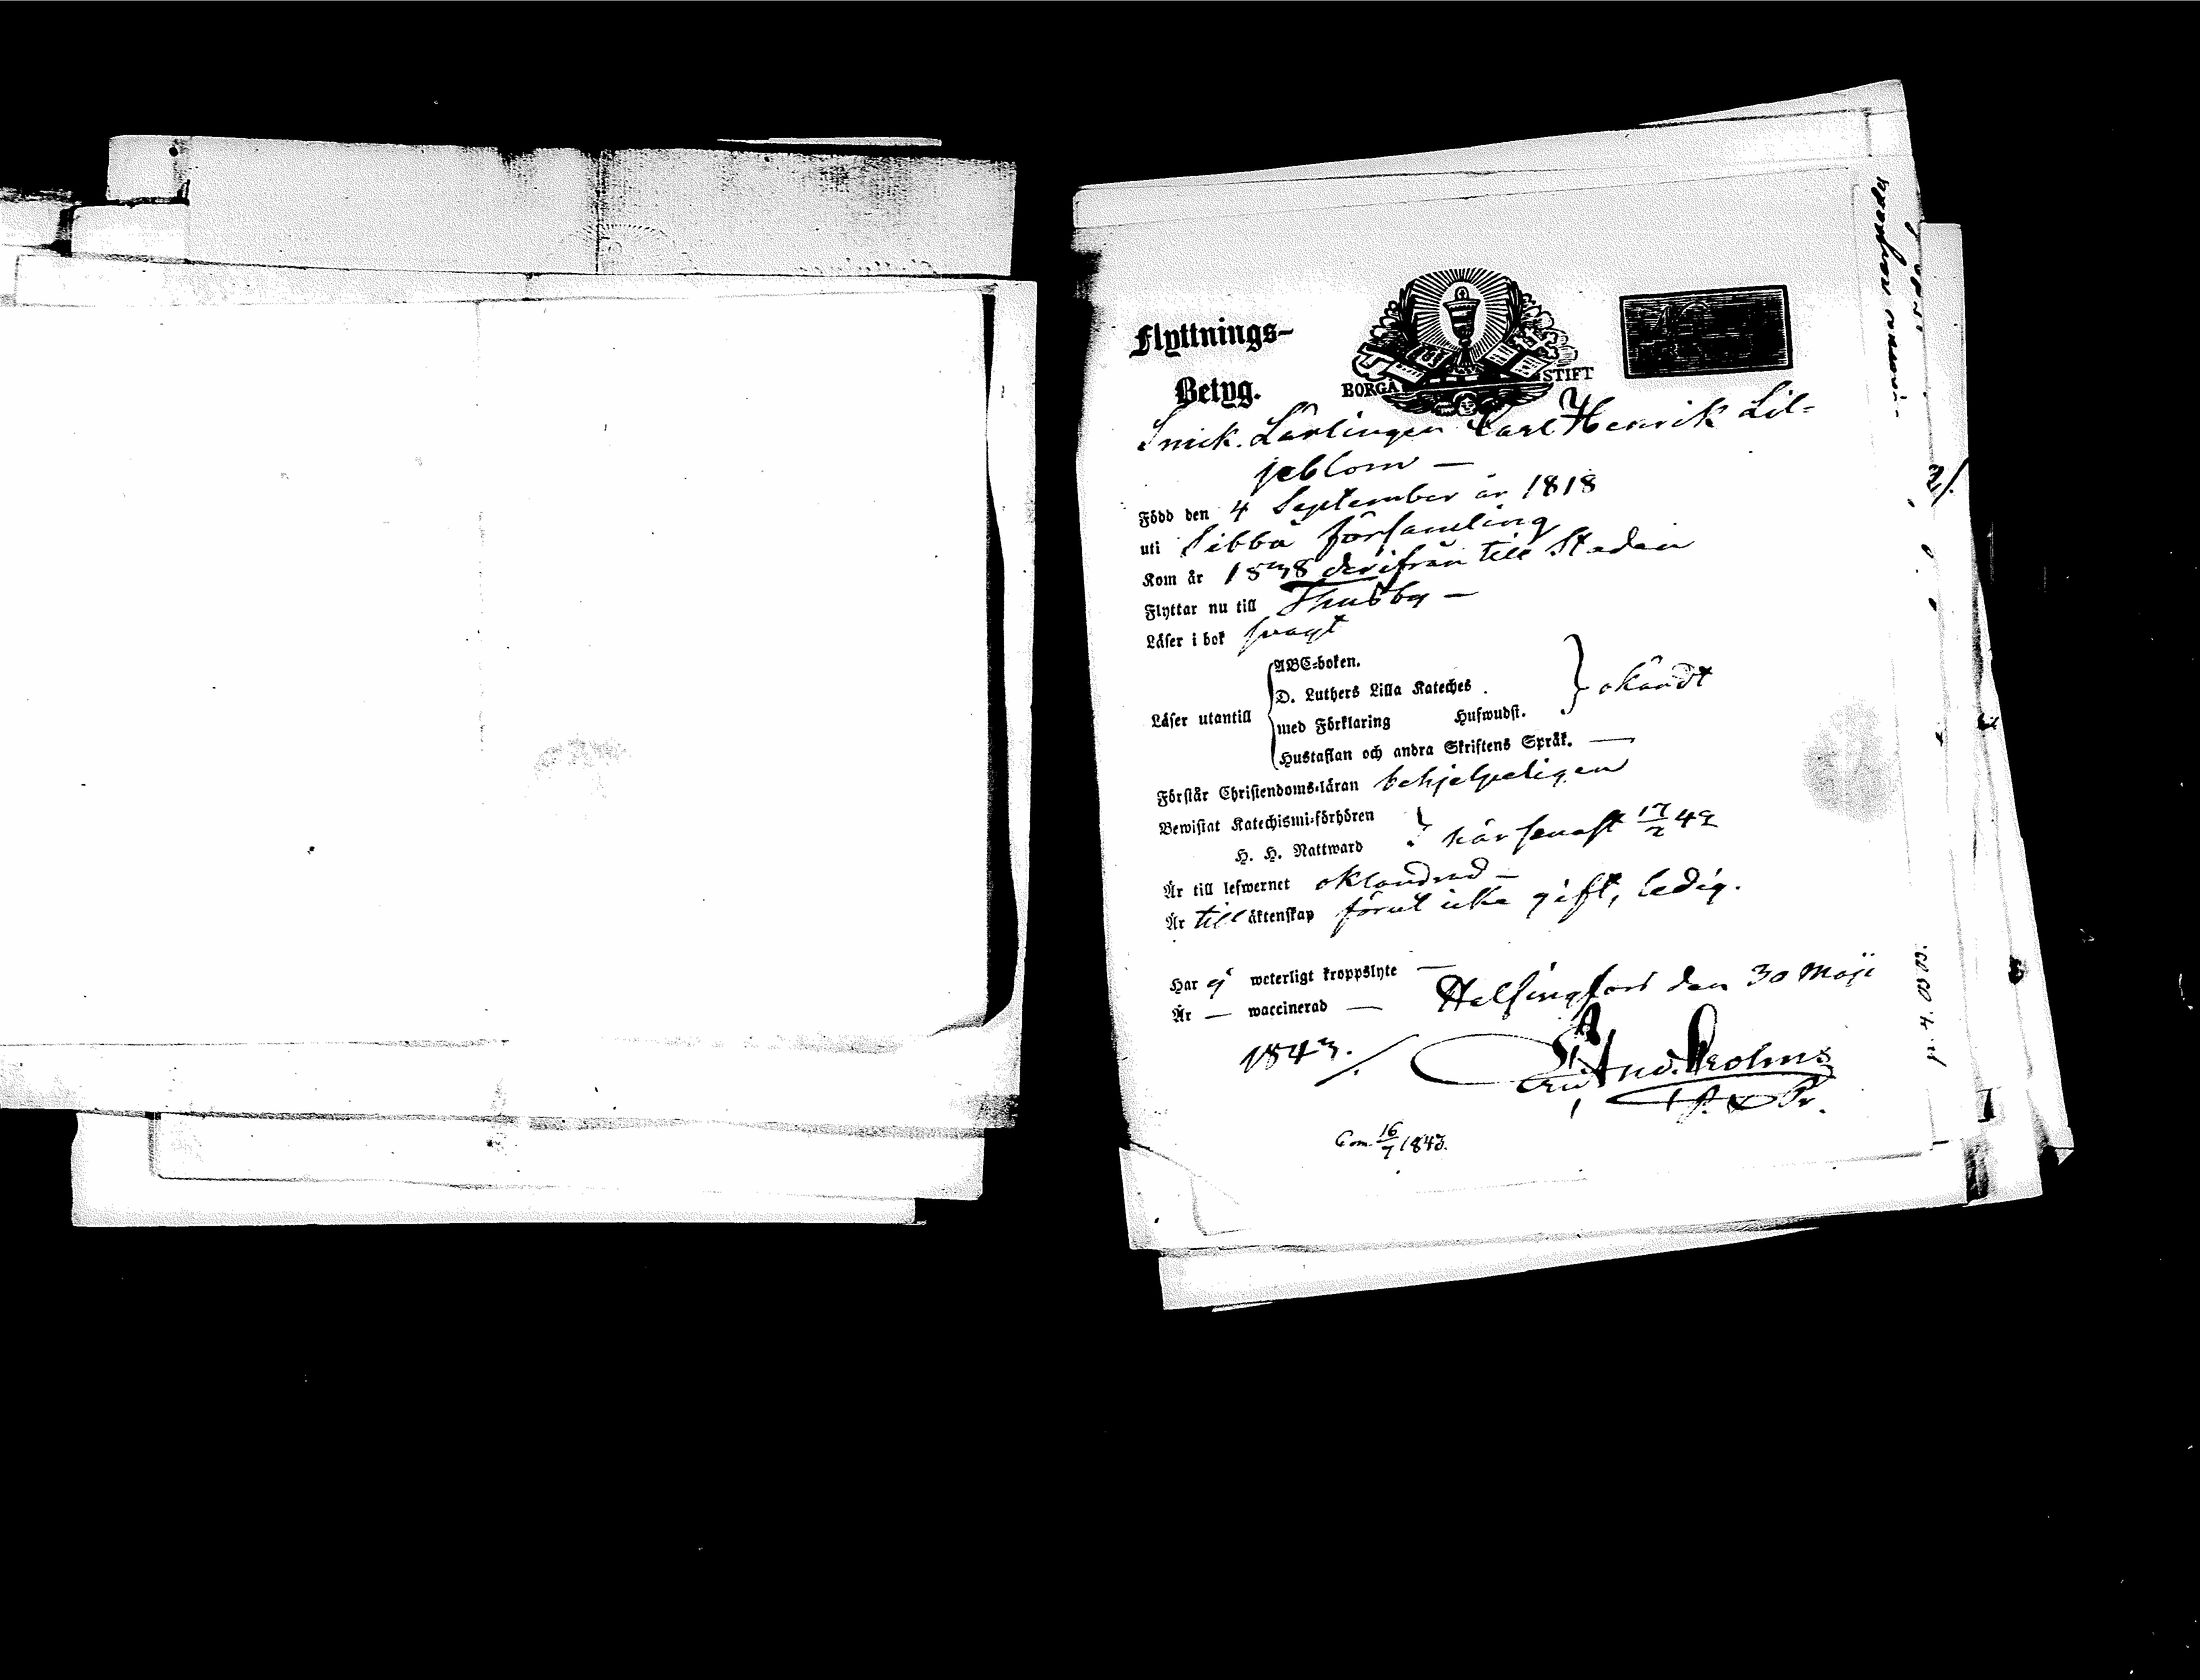 Flyttnings-
Betyg.
BORGÅ STIFT
Smik. Lärlingen Carl Henrik Lil=
jeblom —
Född den 4 September år 1818
uti Sibbå församling
Kom år 1838 derifrån till Staden
Flyttar nu till Thusby —
Läser i bok svagt
Läser utantill
ABC-boken.
D. Luthers Lilla Kateches
med Förklaring Hufwudst.
okändt
Hustaflan och andra Skriftens Språk. —
Förstår Christendoms-läran behjelpeligen
Bewistat Katechismi-förhören
H. H. Nattward
när senast 17/2 42
Är till lefwernet oklandrad —
Är till äktenskap förut icke gift, ledig.
Har ej weterligt kroppslyte —
Är — waccinerad — Helsingfors den 30 Maji
1843.
And. Krohns
Com. 16/7 1843.